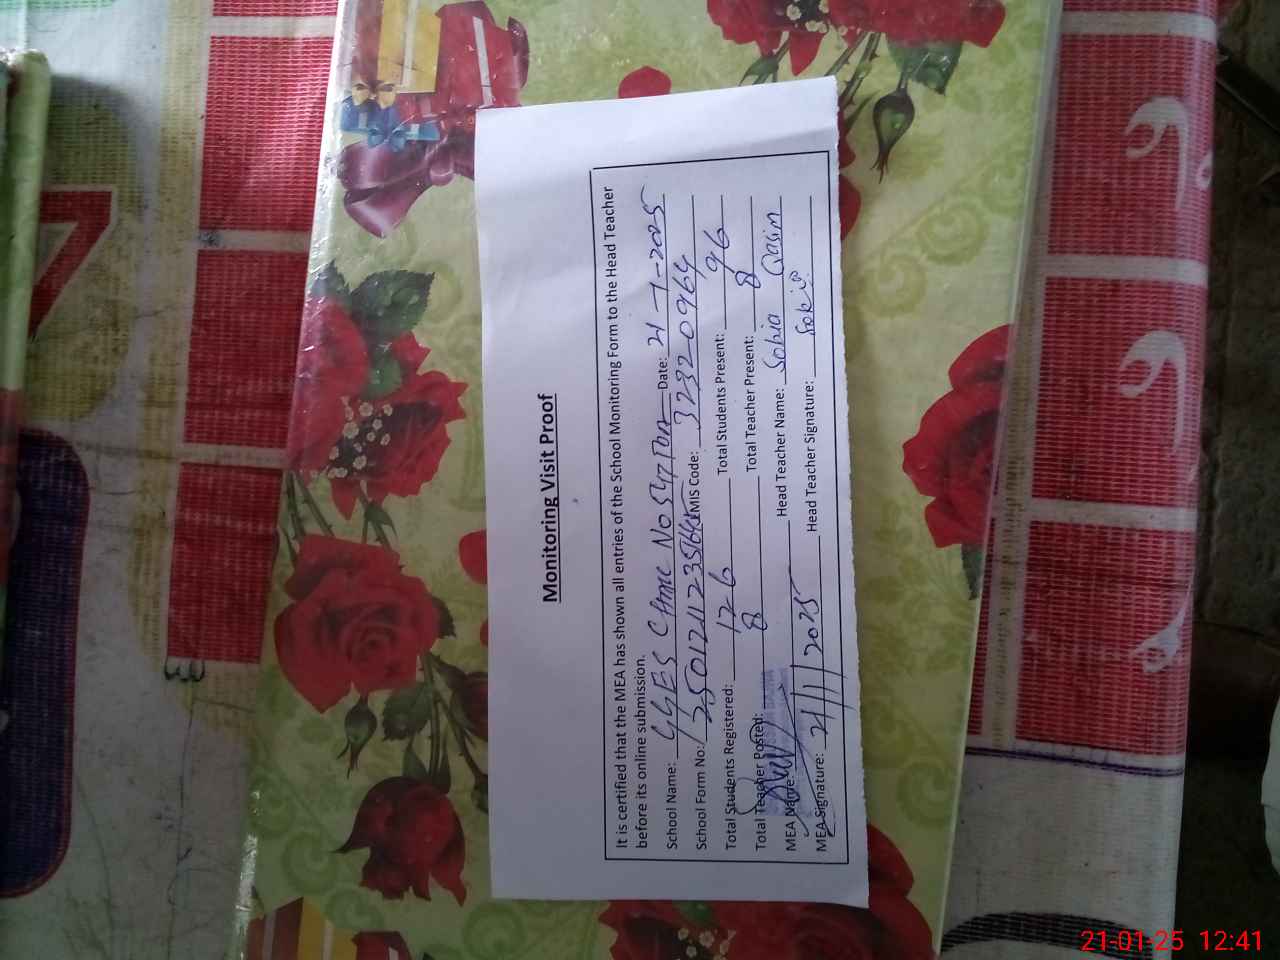 Monitoring Visit Proof
It is certified that the MEA has shown all entries of the School Monitoring Form to the Head Teacher
before its online submission.
School Name: GGES Date: 21-1-2025
School Form No: EMIS Code: 32320964
Total Students Registered: 126 Total Students Present: 96
Total Teacher Posted: 8 Total Teacher Present: 8
MEA Name: Head Teacher Name: Sobia Qasim
MEA Signature: 21/1/2025 Head Teacher Signature: Sobia
21-01-25 12:41